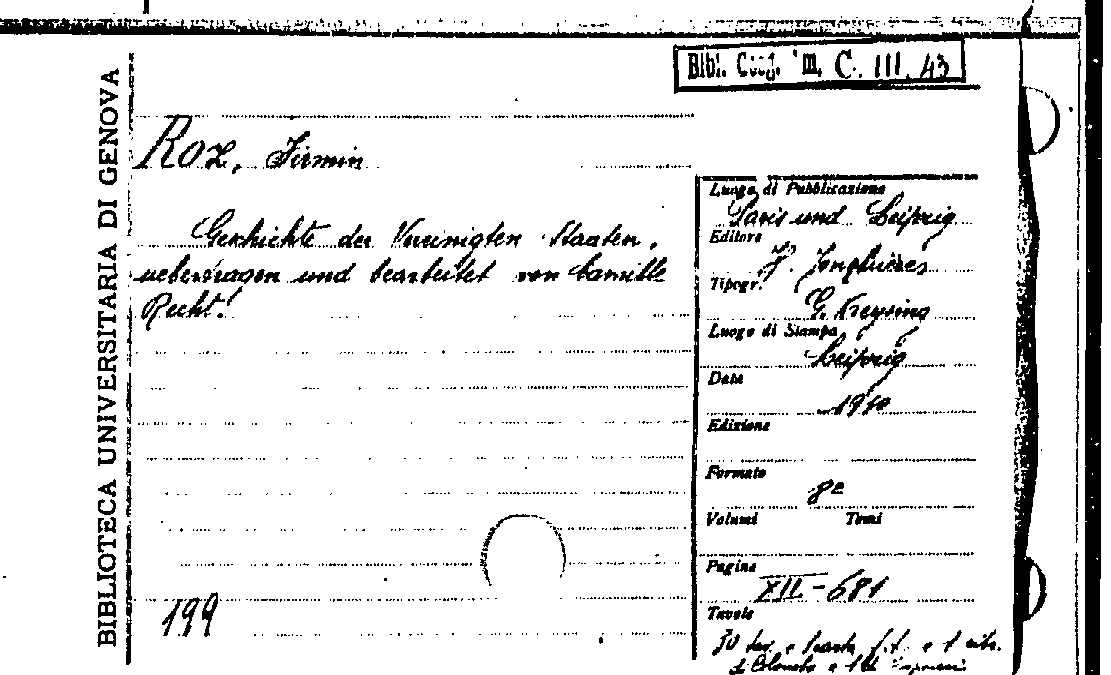 BIBLIOTECA UNIVERSITARIA DI GENOVA
Bibl. C. III. 43
Roz, Firmin
Geschichte der Vereinigten Staaten,
uebertragen und bearbeitet von Camille
Recht.
199
Luogo di Pubblicazione
Paris und Leipzig
Editore
H.
Tipogr.
G. Kreysing
Luogo di Stampa
Leipzig
Data
Edizione
Formato
8º
Volumi Tomi
Pagine
XII-681
Tavole